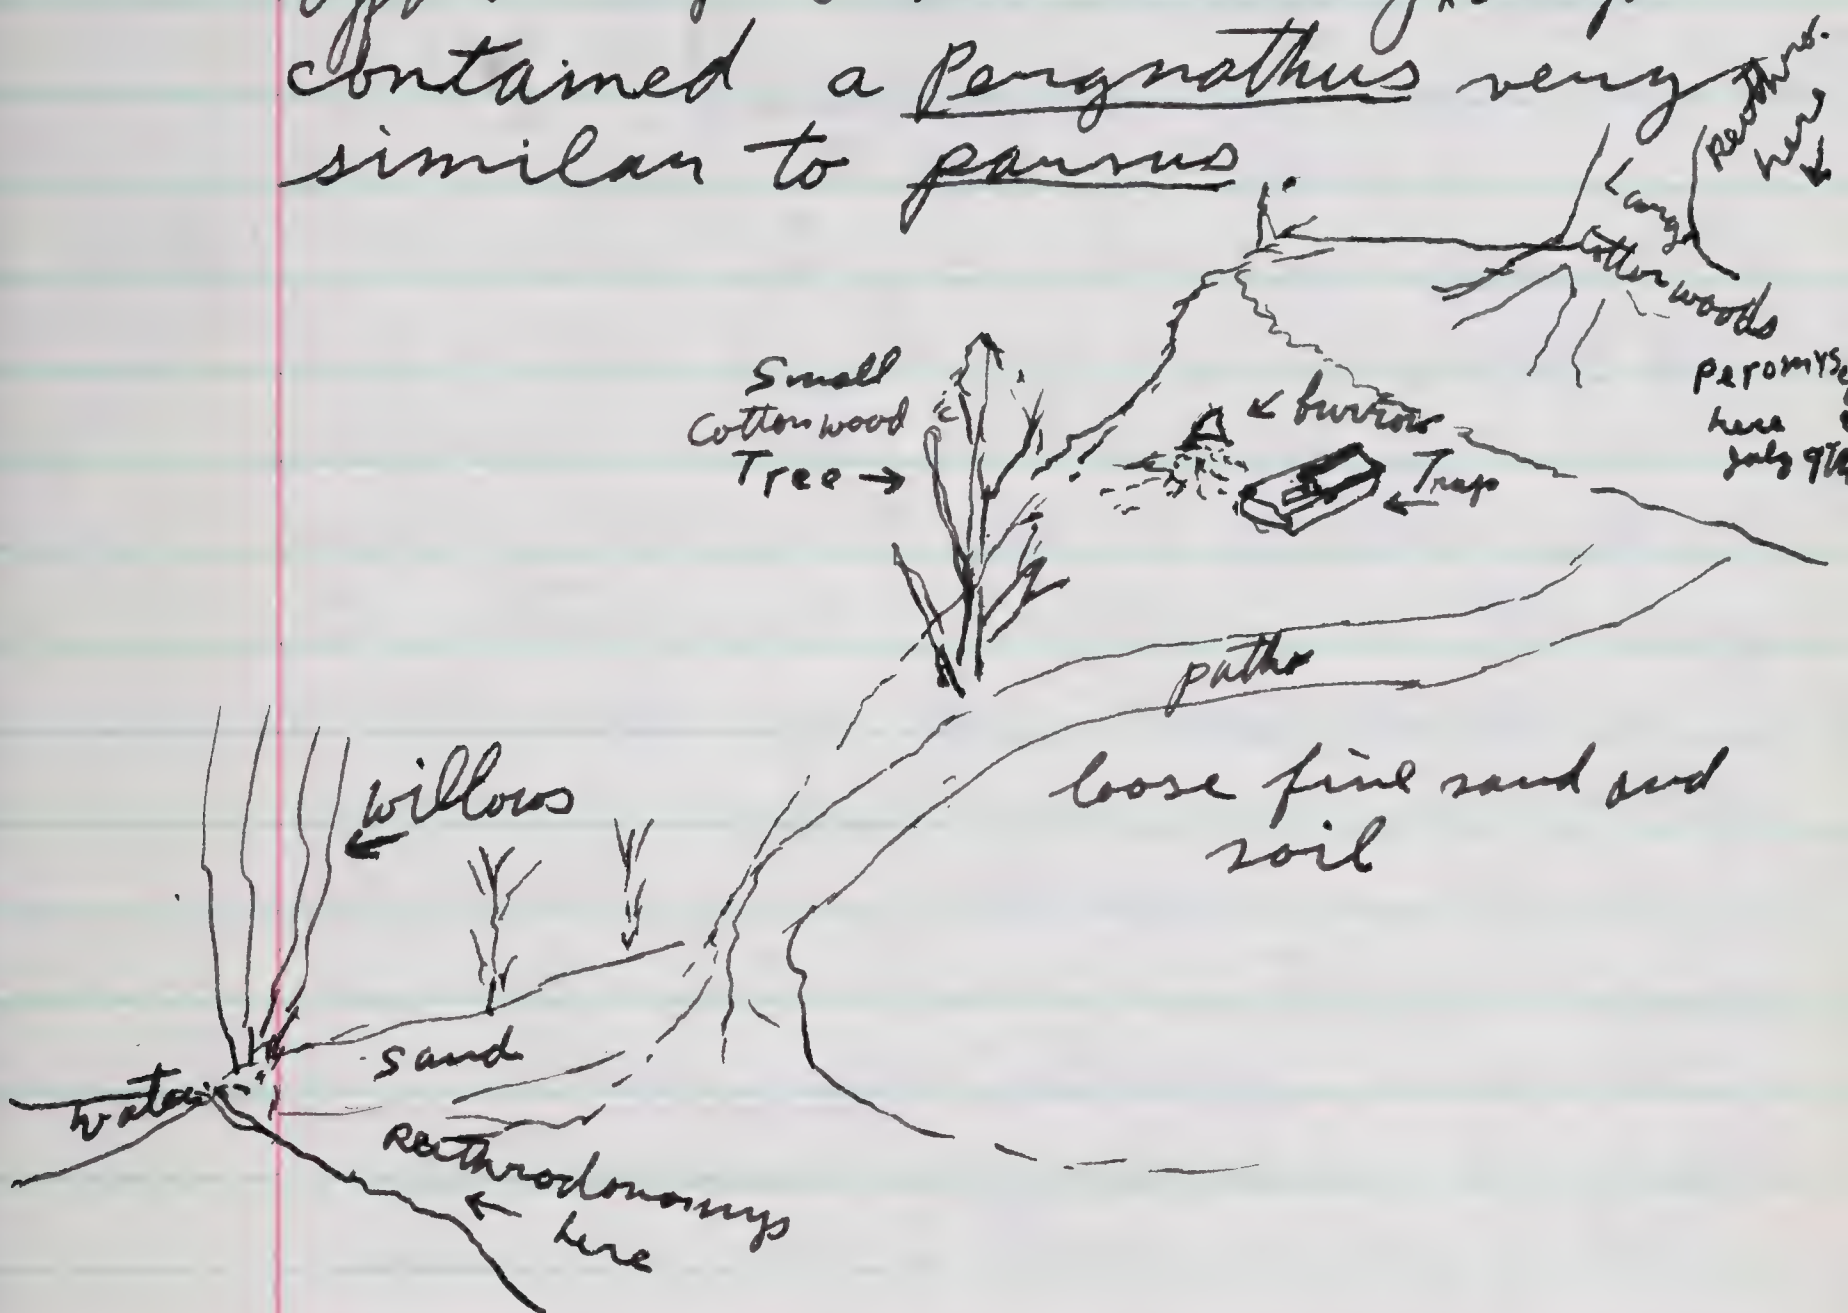 contained a Perognathus very
similar to parvus.
Reithro.
here
Large
Cottonwoods
Peromys
here
July 9th
Small
Cottonwood
Tree
burrow
Trap
path
loose fine sand and
soil
willows
sand
water
Reithrodonomys
here